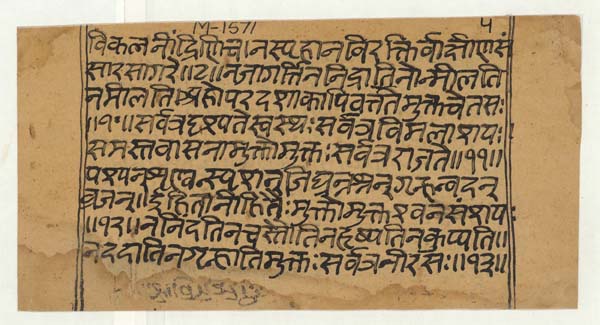 M-1571 ५
विकलनींद्रिणिच।नस्पृहानविरक्तिर्वाक्षीणसं
सारसागरे॥९॥नजागर्त्तिननिद्रातिनोन्मीलति
नमीलति।अहोपरदशाक्वापिवर्त्ततेमुक्तचेतसः
॥१०॥सर्वत्रदृश्यतेस्वस्थःसर्वत्रविमलाशयः
समस्तवासनामुक्तोमुक्तःसर्वत्रराजते॥११॥
पश्यन्शृण्वन्स्पृशन्जिघ्रन्नश्नन्गृह्णन्वदन्
व्रजन्॥ईहितानीहितैःमुक्तोमुक्तएवनसंशयः
॥१२॥ननिंदतिनचस्तौतिनहृष्यतिनकुप्यति॥
नददातिनगृह्णातिमुक्तःसर्वत्रनीरसः॥१३॥